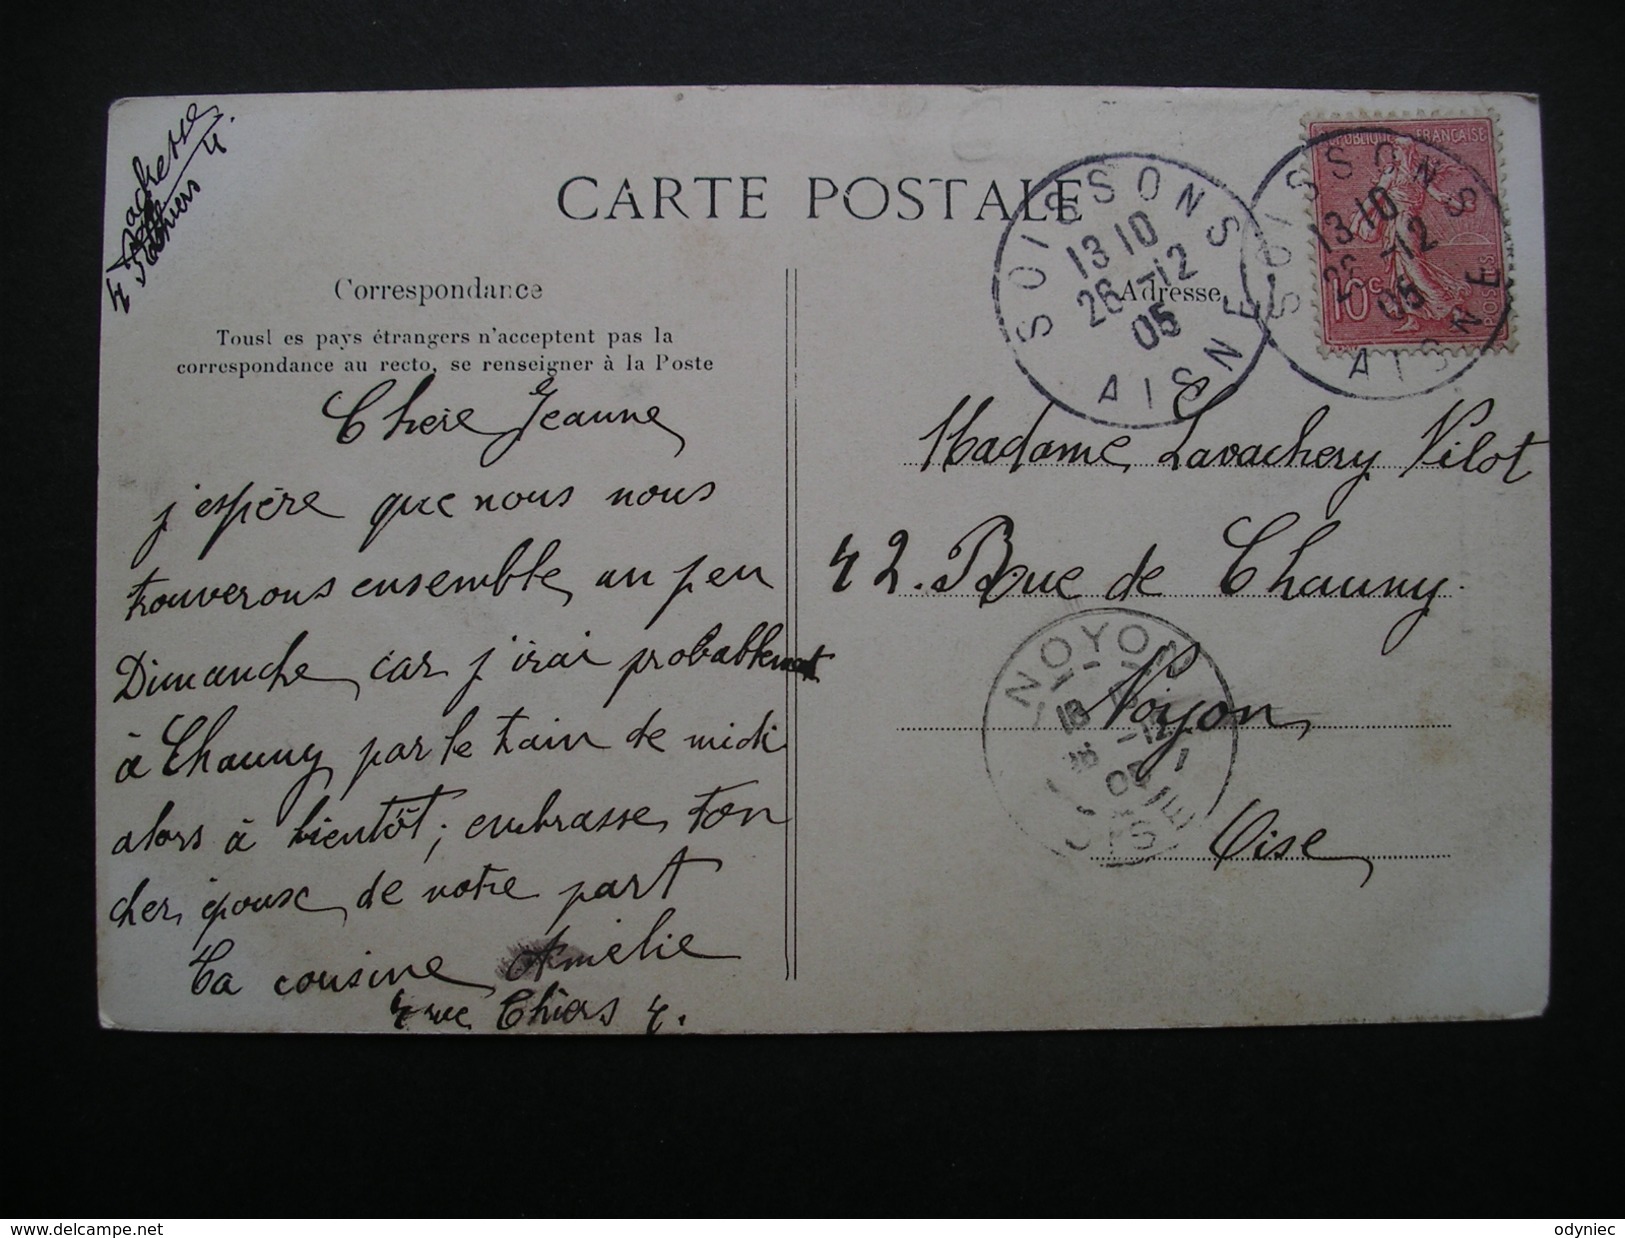 CARTE POSTALE
Correspondance
Tousl es pays étrangers n'acceptent pas la
correspondance au recto, se renseigner à la Poste
Chère Jeanne
j'espère que nous nous
trouverons ensemble un peu
Dimanche, car j'irai probablement
à Chauny par le train de midi
alors à bientôt; embrasse ton
cher épouse de notre part
Ta cousine Amélie
4 rue Thiers 4.
Adresse
Madame Lavachery Vilot
42. Rue de Chauny.
Noyon
Oise
SOISSONS
13 10
26 -12
05
AISNE
SOISSONS
13 10
26 -12
05
AISNE
REPUBLIQUE FRANÇAISE
10c
POSTES
NOYON
18
-12
05
OISE
delcampe.net
odyniec